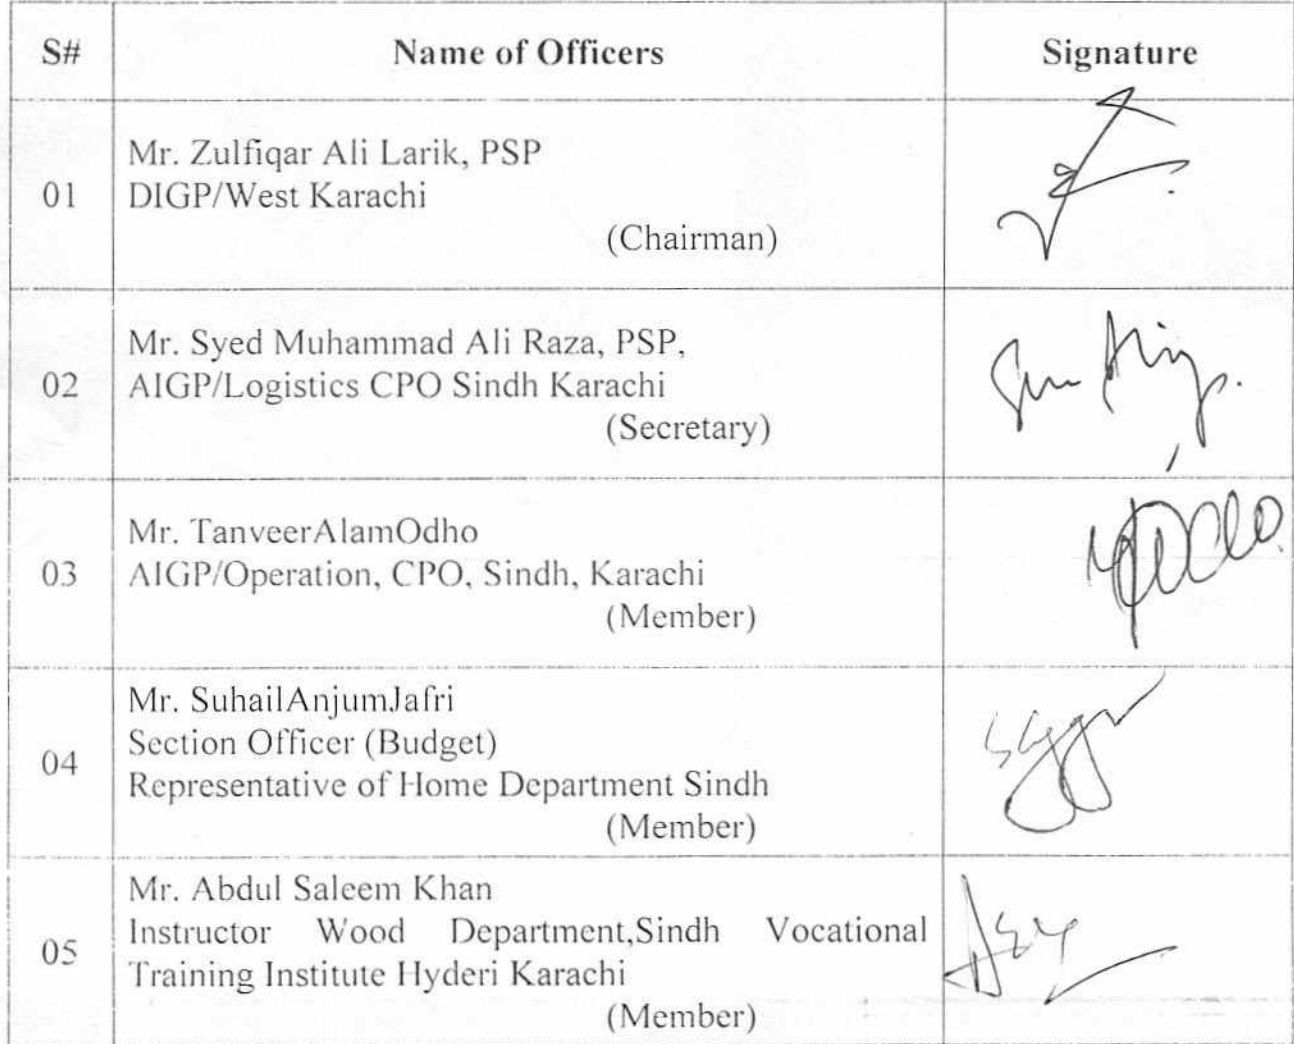 S# Name of Officers Signature
Mr. Zulfiqar Ali Larik, PSP
01 DIGP/West Karachi
(Chairman)
Mr. Syed Muhammad Ali Raza, PSP,
02 AIGP/Logistics CPO Sindh Karachi
(Secretary)
Mr. TanveerAlamOdho
03 AIGP/Operation, CPO, Sindh, Karachi
(Member)
Mr. SuhailAnjumJafri
Section Officer (Budget)
04
Representative of Home Department Sindh
(Member)
Mr. Abdul Saleem Khan
Instructor Wood Department,Sindh Vocational
05
Training Institute Hyderi Karachi
(Member)